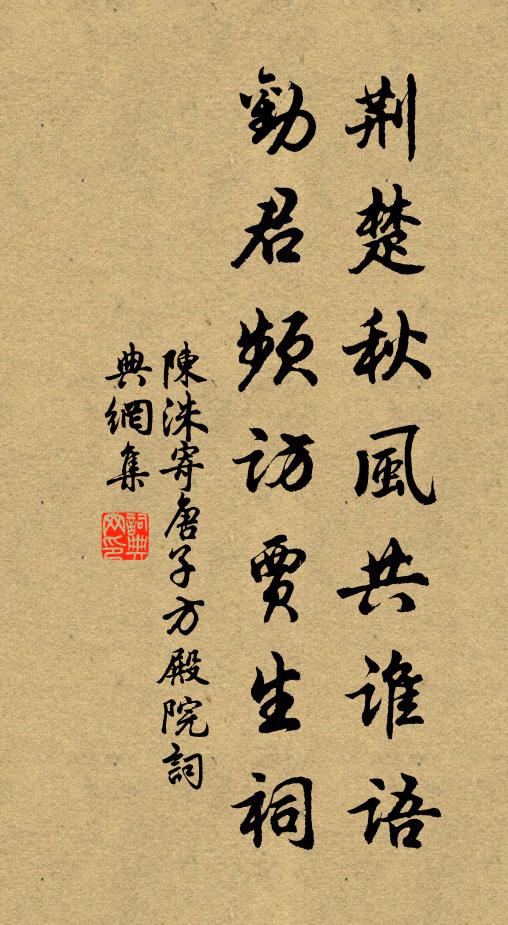 荆楚秋風共誰語
勸君頻訪賈生祠
陳洙寄唐子方殿院詞
典網集
詞典網印